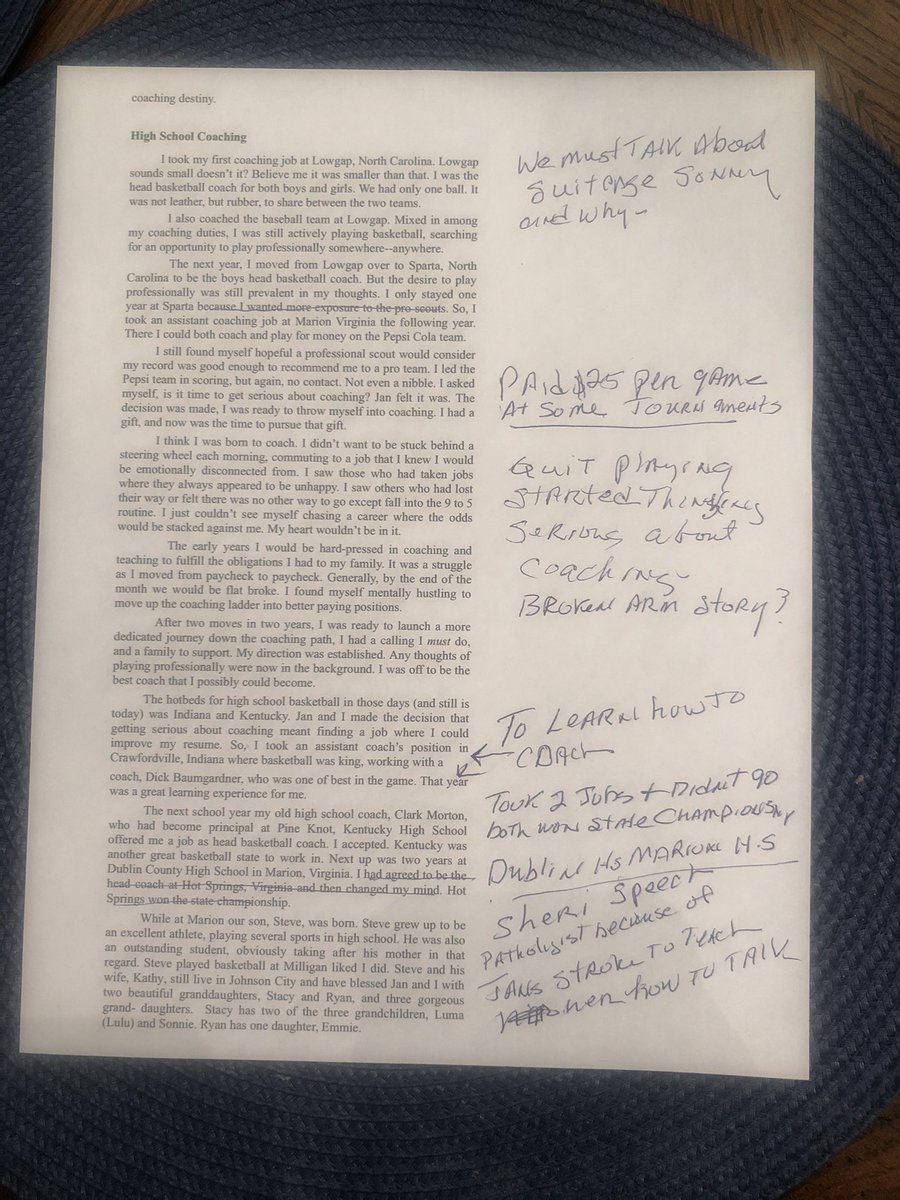 coaching destiny.
High School Coaching
I took my first coaching job at Lowgap, North Carolina. Lowgap
sounds small doesn't it? Believe me it was smaller than that. I was the
head basketball coach for both boys and girls. We had only one ball. It
was not leather, but rubber, to share between the two teams.
I also coached the baseball team at Lowgap. Mixed in among
my coaching duties, I was still actively playing basketball, searching
for an opportunity to play professionally somewhere--anywhere.
The next year, I moved from Lowgap over to Sparta, North
Carolina to be the boys head basketball coach. But the desire to play
professionally was still prevalent in my thoughts. I only stayed one
year at Sparta because I wanted more exposure to the pro scouts. So, I
took an assistant coaching job at Marion Virginia the following year.
There I could both coach and play for money on the Pepsi Cola team.
I still found myself hopeful a professional scout would consider
my record was good enough to recommend me to a pro team. I led the
Pepsi team in scoring, but again, no contact. Not even a nibble. I asked
myself, is it time to get serious about coaching? Jan felt it was. The
decision was made, I was ready to throw myself into coaching. I had a
gift, and now was the time to pursue that gift.
I think I was born to coach. I didn't want to be stuck behind a
steering wheel each morning, commuting to a job that I knew I would
be emotionally disconnected from. I saw those who had taken jobs
where they always appeared to be unhappy. I saw others who had lost
their way or felt there was no other way to go except fall into the 9 to 5
routine. I just couldn't see myself chasing a career where the odds
would be stacked against me. My heart wouldn't be in it.
The early years I would be hard-pressed in coaching and
teaching to fulfill the obligations I had to my family. It was a struggle
as I moved from paycheck to paycheck. Generally, by the end of the
month we would be flat broke. I found myself mentally hustling to
move up the coaching ladder into better paying positions.
After two moves in two years, I was ready to launch a more
dedicated journey down the coaching path, I had a calling I must do,
and a family to support. My direction was established. Any thoughts of
playing professionally were now in the background. I was off to be the
best coach that I possibly could become.
The hotbeds for high school basketball in those days (and still is
today) was Indiana and Kentucky. Jan and I made the decision that
getting serious about coaching meant finding a job where I could
improve my resume. So, I took an assistant coach's position in
Crawfordville, Indiana where basketball was king, working with a
coach, Dick Baumgardner, who was one of best in the game. That year
was a great learning experience for me.
The next school year my old high school coach, Clark Morton,
who had become principal at Pine Knot, Kentucky High School
offered me a job as head basketball coach. I accepted. Kentucky was
another great basketball state to work in. Next up was two years at
Dublin County High School in Marion, Virginia. I had agreed to be the
head coach at Hot Springs, Virginia and then changed my mind. Hot
Springs won the state championship.
While at Marion our son, Steve, was born. Steve grew up to be
an excellent athlete, playing several sports in high school. He was also
an outstanding student, obviously taking after his mother in that
regard. Steve played basketball at Milligan liked I did. Steve and his
wife, Kathy, still live in Johnson City and have blessed Jan and I with
two beautiful granddaughters, Stacy and Ryan, and three gorgeous
grand- daughters. Stacy has two of the three grandchildren, Luma
(Lulu) and Sonnie. Ryan has one daughter, Emmie.
We must TALK About
Suitcase Sonny
and why-
PAid $25 per game
At Some TOURNAments
Quit playing
STARTED Thinking
Serious about
Coaching-
BROKEN ARM STORY?
To LEARN how TO
COACH
Took 2 Jobs + Didnt go
both won State Championship
Dublin HS MARION H.S
Sheri Speech
PAthologist because of
JANS STROKE TO TEACH
her how TO TALK